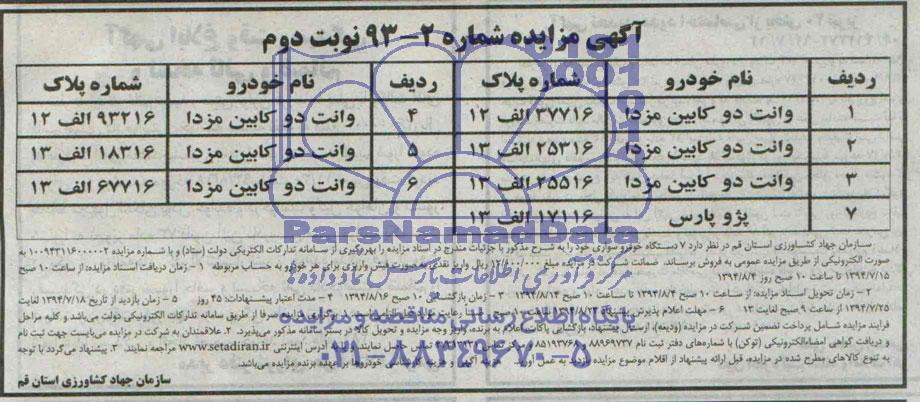 آگهی مزایده شماره ۲-۹۳ نوبت دوم
ردیف نام خودرو شماره پلاک ردیف نام خودرو شماره پلاک
۱ وانت دو کابین مزدا ۳۷۷۱۶ الف ۱۲ ۴ وانت دو کابین مزدا ۹۳۲۱۶ الف ۱۲
۲ وانت دو کابین مزدا ۲۵۳۱۶ الف ۱۳ ۵ وانت دو کابین مزدا ۱۸۳۱۶ الف ۱۳
۳ وانت دو کابین مزدا ۲۵۵۱۶ الف ۱۳ ۶ وانت دو کابین مزدا ۶۷۷۱۶ الف ۱۳
۷ پژو پارس ۱۷۱۱۶ الف ۱۳
ParsNamadData
سازمان جهاد کشاورزی استان قم در نظر دارد ۷ دستگاه خودرو سواری خود را به شرح مذکور با جزئیات مندرج در اسناد مزایده را بهره‌گیری از سامانه تدارکات الکتریکی دولت (ستاد) و با شماره مزایده ۱۰۰۹۴۳۱۱۶۰۰۰۰۰۲ به
صورت الکترونیکی از طریق مزایده عمومی به فروش برساند. ضمانت شرکت در مزایده مبلغ ۱۲/۸۰۰/۰۰۰ ریال واریز نقدی به صورت فیش واریزی برای هر خودرو به حساب مربوطه ۱ - زمان دریافت اسناد مزایده: از ساعت ۱۰ صبح
۱۳۹۴/۷/۱۵ تا ساعت ۱۰ صبح روز ۱۳۹۴/۸/۴
۲ - زمان تحویل اسناد مزایده: از ساعت ۱۰ صبح ۱۳۹۴/۸/۴ تا ساعت ۱۰ صبح ۱۳۹۴/۸/۱۴ ۳ - زمان بازگشایی ۱۰ صبح ۱۳۹۴/۸/۱۶ ۴ - مدت اعتبار پیشنهادات: ۴۵ روز ۵ - زمان بازدید از تاریخ ۱۳۹۴/۷/۱۸ لغایت
۱۳۹۴/۷/۲۵ از ساعت ۹ صبح لغایت ۱۳ ۶ - مهلت اعلام پذیرش صرفا از طریق سامانه تدارکات الکترونیکی دولت می‌باشد و کلیه مراحل
فرایند مزایده شامل پرداخت تضمین شرکت در مزایده (ودیعه)، ارسال پیشنهاد، بازگشایی پاکات، اعلام به برنده، واریز وجه مزایده و تحویل کالا در بستر سامانه مذکور می‌پذیرد. ۲. علاقمندان به شرکت در مزایده می‌بایست جهت ثبت نام
و دریافت گواهی امضاءالکترونیکی (توکن) با شماره‌های دفتر ثبت نام ۸۸۹۶۹۷۳۷ تماس حاصل نمایند آدرس اینترنتی www.setadiran.ir مراجعه نمایند. ۳. پیشنهاد می‌گردد با توجه
به تنوع کالاهای مطرح شده در مزایده، قبل ارائه پیشنهاد از اقلام موضوع مزایده بازدید به عمل آورید. هزینه آگهی و هزینه کارشناسی خودروها بر عهده برنده مزایده می‌باشد.
پایگاه اطلاع رسانی مناقصه و مزایده
۰۲۱-۸۸۳۴۹۶۷۰-۵
سازمان جهاد کشاورزی استان قم